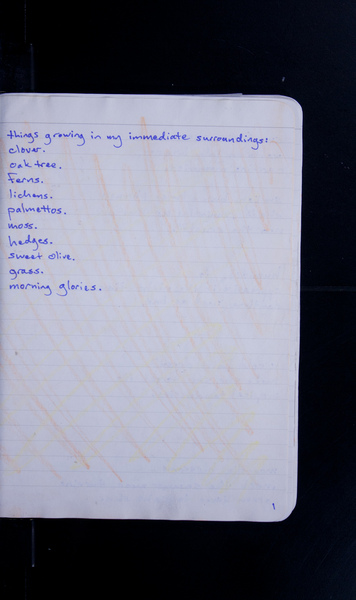 things growing in my immediate surroundings:
clover.
oak tree.
Ferns.
lichens.
palmettos.
moss.
hedges.
sweet olive.
grass.
morning glories.
1